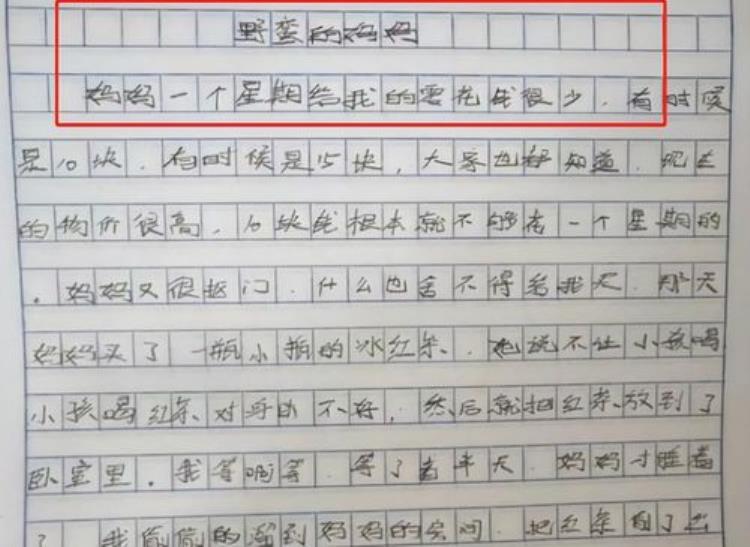 野蛮的妈妈
妈妈一个星期给我的零花钱很少，有时候
是10块，有时候是15块，大家也都知道，现在
的物价很高，10块钱根本就不够花一个星期的
，妈妈又很抠门，什么也舍不得给我买，那天
妈妈买了一瓶小瓶的冰红茶，她说不让小孩喝
小孩喝红茶对身体不好，然后就把红茶放到了
卧室里，我等啊等，等了老半天，妈妈才睡着
了，我偷偷的溜到妈妈的房间，把红茶拿了出